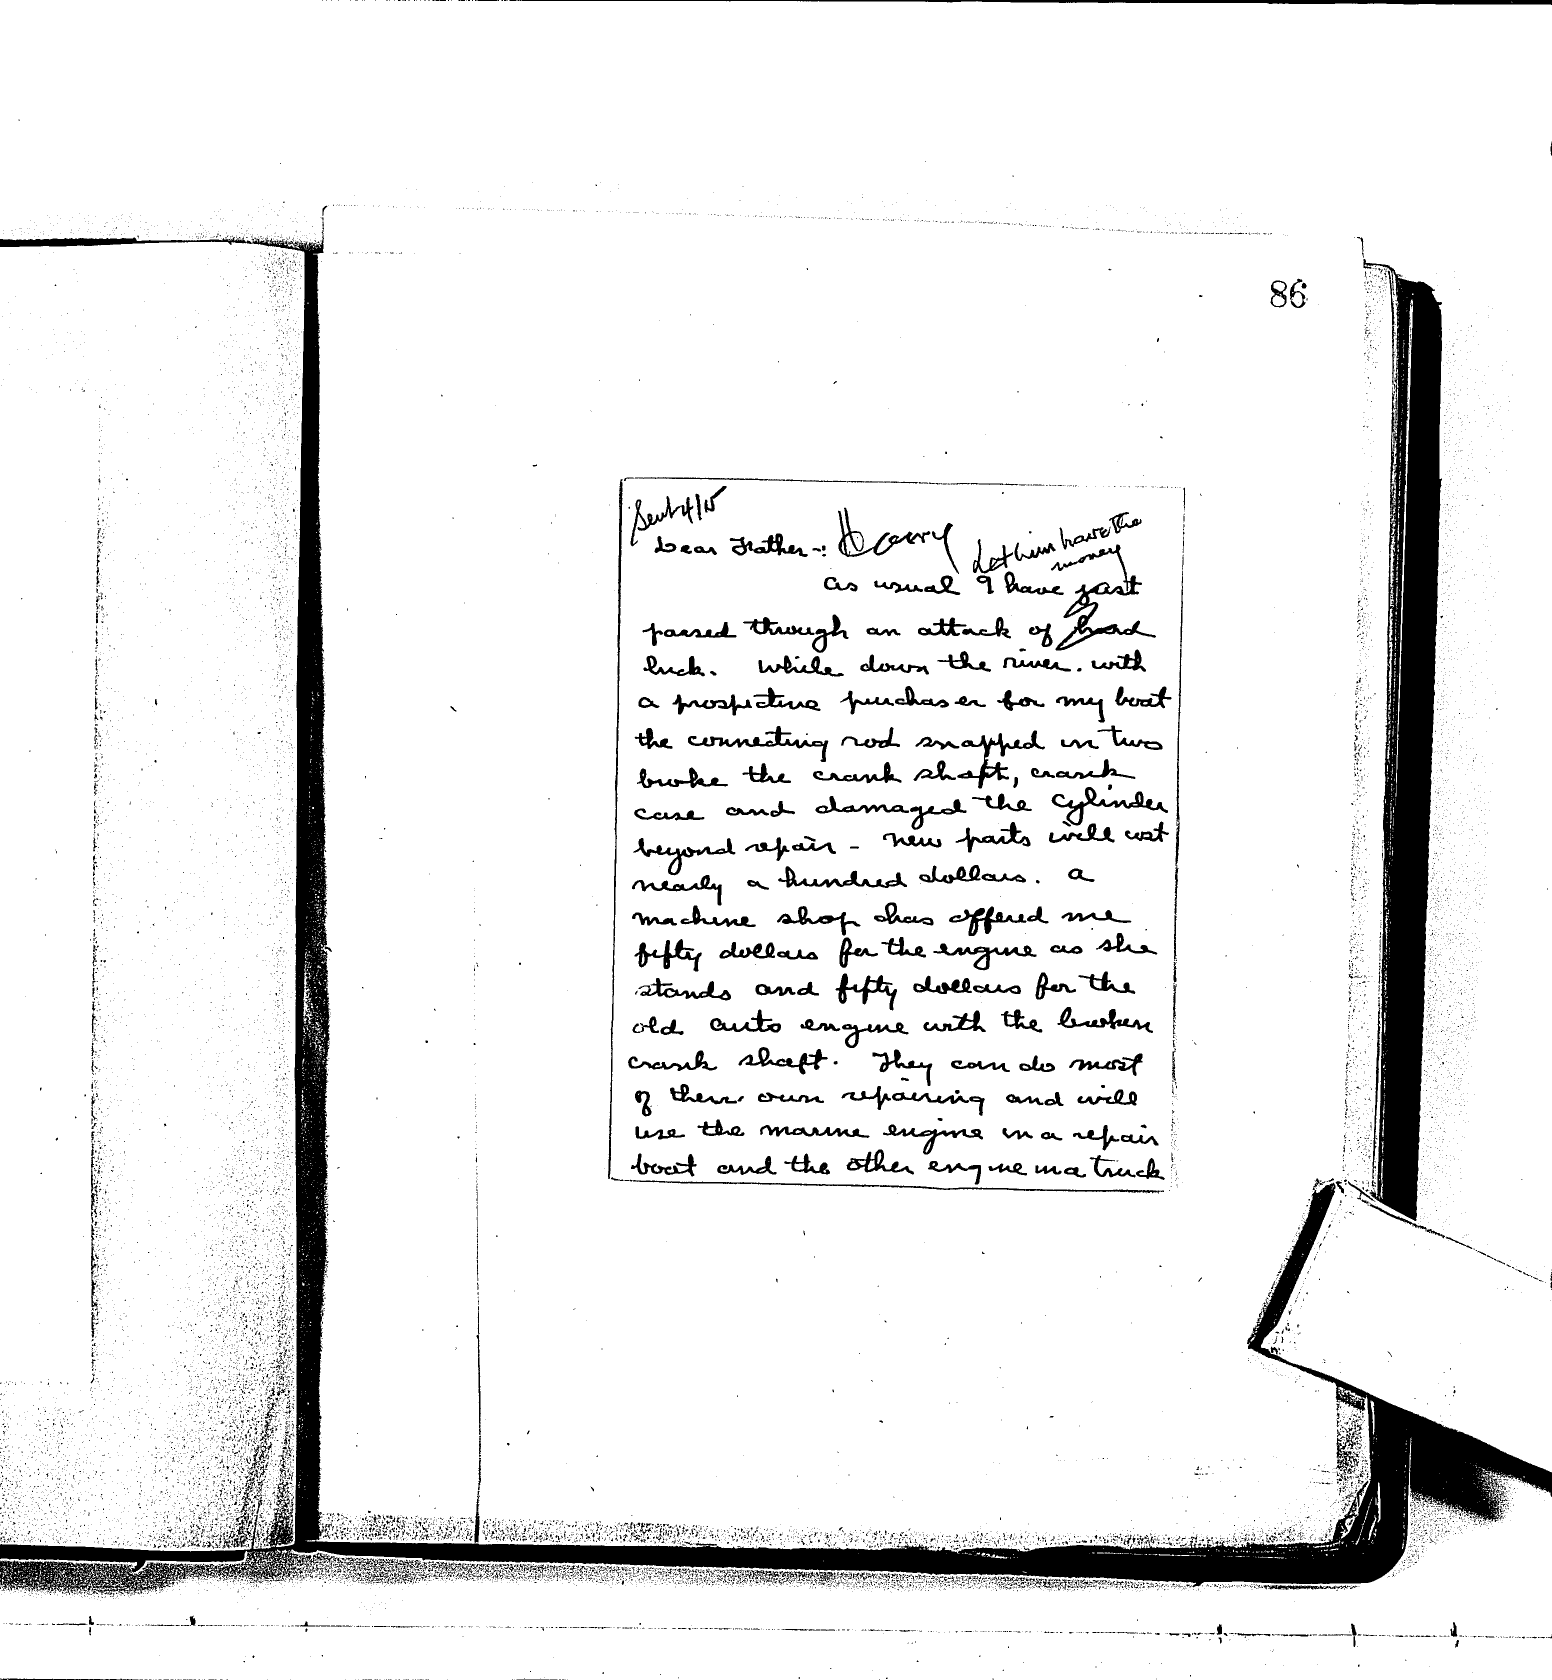 86
Sent 4/15
Dear Father-: Harry Let him have the
money
as usual I have just
passed through an attack of hard
luck. While down the river. with
a prospective purchaser for my boat
the connecting rod snapped in two
broke the crank shaft, crank
case and damaged the cylinder
beyond repair - new parts will cost
nearly a hundred dollars. a
machine shop has offered me
fifty dollars for the engine as she
stands and fifty dollars for the
old auto engine with the broken
crank shaft. They can do most
of their own repairing and will
use the marine engine in a repair
boat and the other engine in a truck